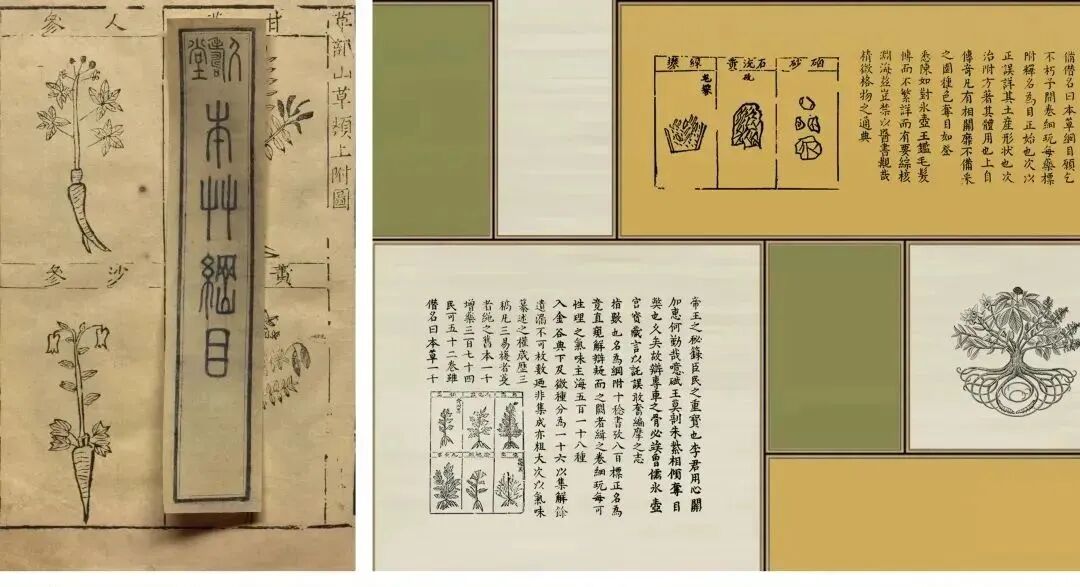 草部山草類上附圖
甘
人參
黃
沙參
本艸綱目
僭僭名曰本草綱目願乞
不朽予開卷細玩每藥標
附釋名為目正始也次以
正誤詳其土産形狀也次
治附方著其體用也上自
傳奇凡有相關靡不備采
之圃種色奪目如登
悉陳如對氷壺玉鑑毛髮
博而不繁詳而有要綜核
淵海茲豈禁以醫書覯哉
精微格物之通典
硇砂
石流黃
綠礬
帝王之秘錄臣民之重寶也李君用心關
加惠何勤哉噫碔玉莫剖朱紫相傾奪目
弊也久矣故辯專車之骨必俟魯儒氷壺
言以託誤敢奮編摩之志
指數也名為綱附十稔書攷八百標正名為
竟直窺解辯疑而之闕者緝之卷細玩每可
性理之氣味主海五百一十八種
入金谷典下及微種分為一十六以集解餘
遺漏不可枚數迺非集成亦粗大次以氣味
纂述之權歲歷三
稿凡三易複者芟
者繩之舊本一十
增藥三百七十四
民可五十二卷雖
僭名曰本草一十